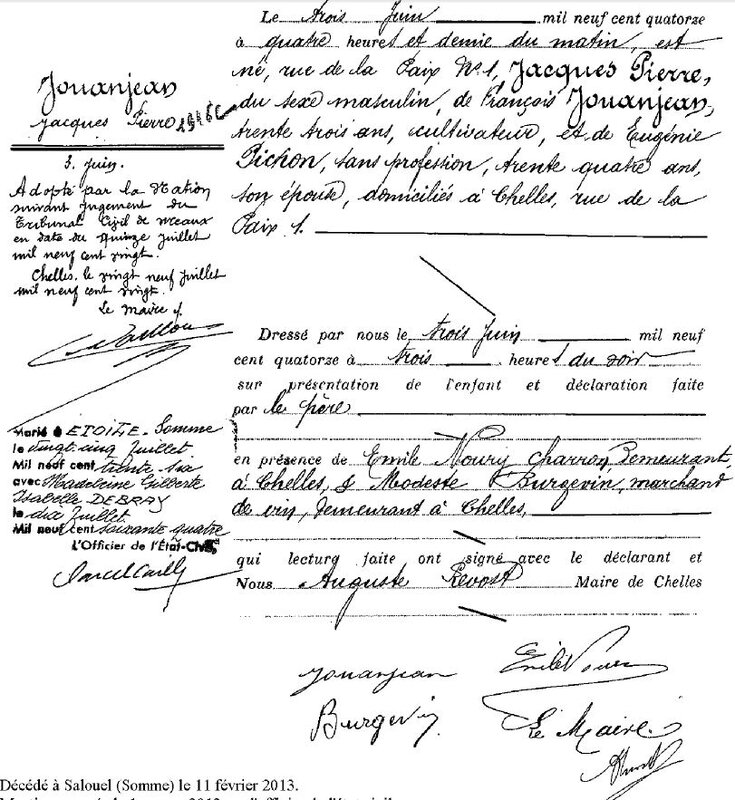 Jouanjean
Jacques Pierre
3. Juin.
Adopté par la Nation
suivant jugement du
Tribunal Civil de Meaux
en date du quinze juillet
mil neuf cent vingt.
Chelles, le vingt neuf juillet
mil neuf cent vingt.
Le Maire
Marié à ETOILE-Somme
le vingt cinq Juillet
Mil neuf cent trente six
avec Madeleine Gilberte
Isabelle DEBRAY
le dix Juillet
Mil neuf cent soixante quatre
L'Officier de l'État-Civil,
Le trois Juin mil neuf cent quatorze
à quatre heures et demie du matin, est
né, rue de la Paix N° 1, Jacques Pierre,
du sexe masculin, de François Jouanjean,
trente trois ans, cultivateur, et de Eugénie
Pichon, sans profession, trente quatre ans,
son épouse, domiciliés à Chelles, rue de la
Paix 1.
Dressé par nous le trois Juin mil neuf
cent quatorze à trois heures du soir
sur présentation de l'enfant et déclaration faite
par le père
en présence de Emile Noury charron, demeurant
à Chelles, & Modeste Burgevin, marchand
de vin, demeurant à Chelles,
qui lecture faite ont signé avec le déclarant et
Nous Auguste Prévost Maire de Chelles
Jouanjean
Burgevin
Le Maire
Décédé à Salouel (Somme) le 11 février 2013.